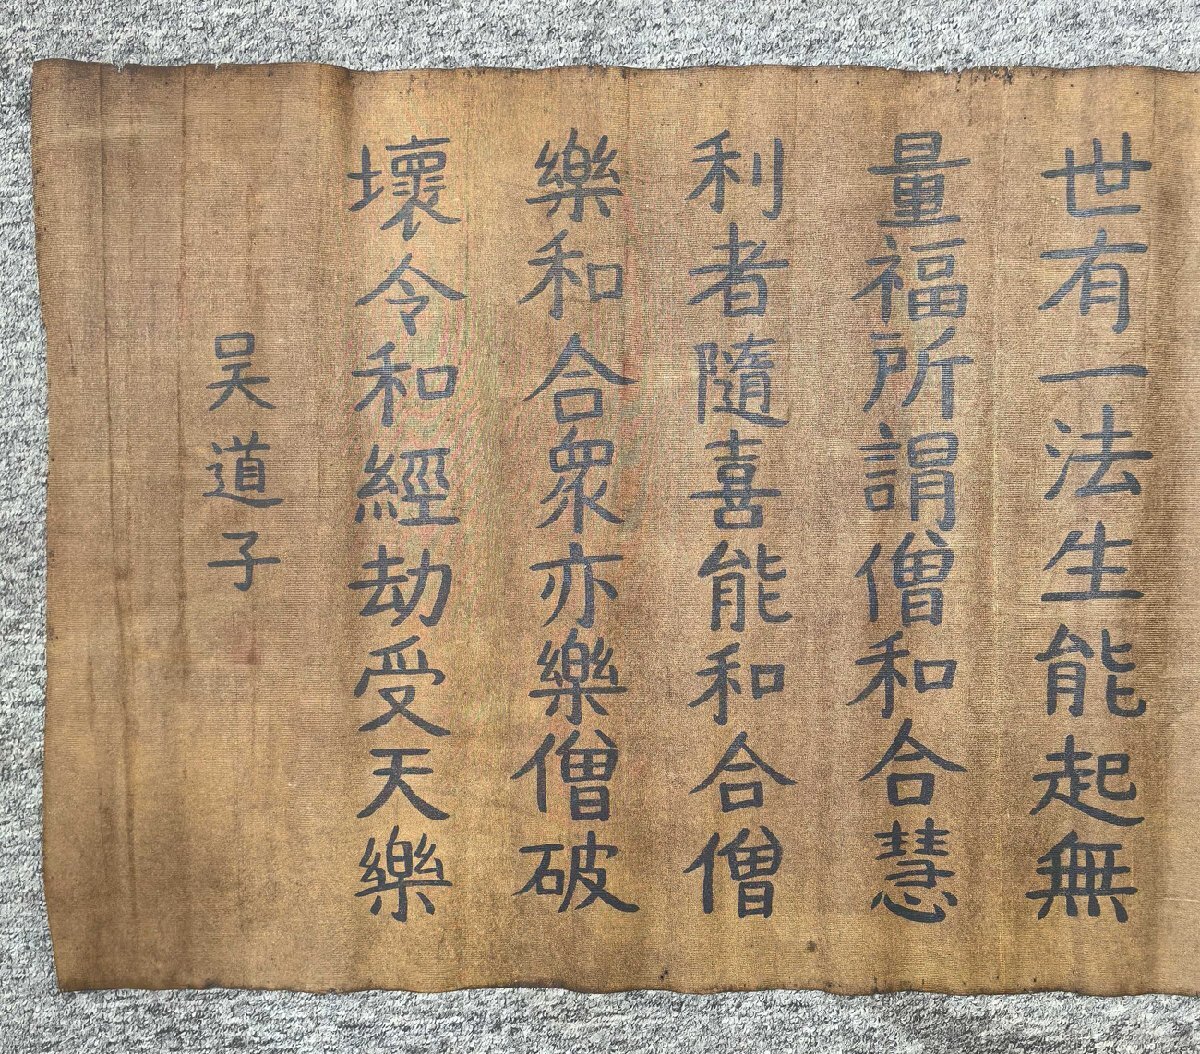 世有一法生能起無
量福所謂僧和合慧
利者隨喜能和合僧
樂和合衆亦樂僧破
壞令和經劫受天樂
吴道子